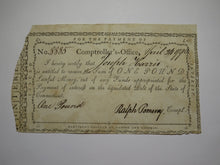 FOR THE PAYMENT OF
No. 5885 Comptroller's-Office, April
I hereby certify that Joseph Harris
is entitled to receive the Sum of ONE POUND
Lawful Money, out of any Funds appropriated for the
Payment of interest on the liquidated Debt of the State of
Connecticut.
One Pound Ralph Pomeroy Compt.